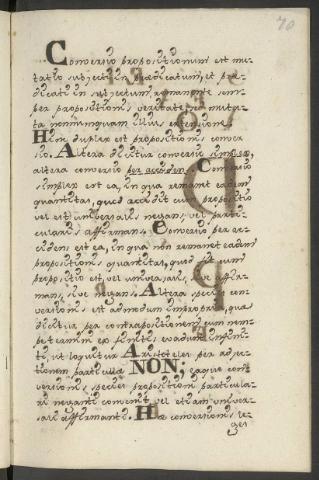 70
Conversio propositionum est mu-
tatio subjecti in prædicatum, et præ-
dicati in subjectum, remanente sem-
per propositionis veritate, sed muta-
ta nonnunquam illius extensione.
Hinc duplex est propositionis conver
sio. Altera dicitur conversio simplex,
altera conversio per accidens. Conversio
simplex est ea, in qua remanet eadem
quantitas, quod accidit cum propositio
vel est universalis negans, vel parti-
cularis affirmans. Conversio per ac-
cidens est ea, in qua non remanet eadem
propositionis quantitas, quod sit cum
propositio est, vel universalis, affir-
mans, sive negans. Altera species con-
versionis est admodum impropria, quæ
dicitur per contrapositionem cum nem-
pe termini ex finitis evadunt infini-
ti, ut loquitur Aristoteles per adjec-
tionem particulæ NON; eaque con-
versionis species propositioni particula-
ri neganti convenit vel etiam univer-
sali affirmanti. Hæ conversionis le-
ges